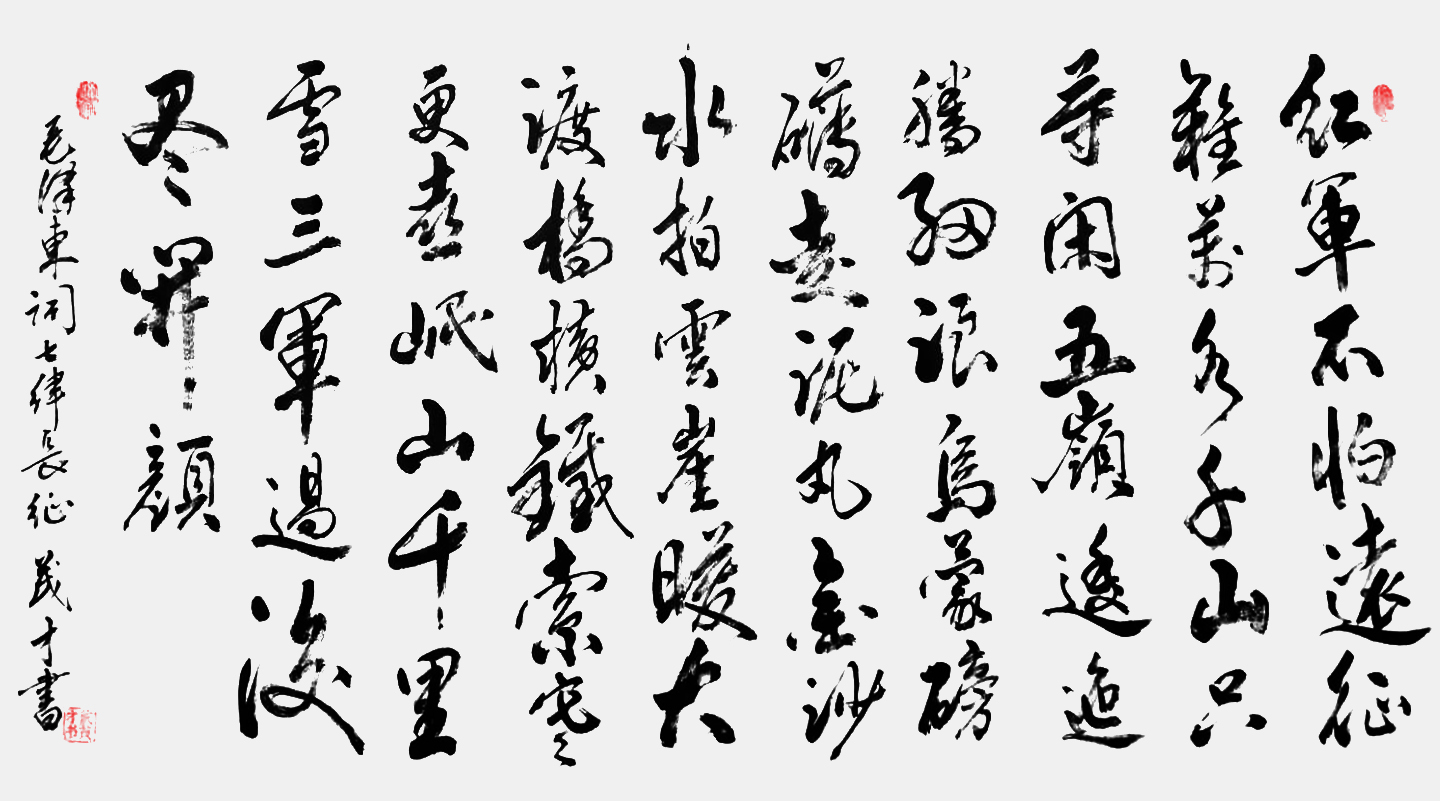 红軍不怕遠征
難萬水千山只
等閑五嶺逶迤
騰细浪烏蒙磅
礴走泥丸金沙
水拍雲崖暖大
渡橋横鐵索寒
更喜岷山千里
雪三軍過後
尽開顔
毛澤東詞七律長征 茂才書